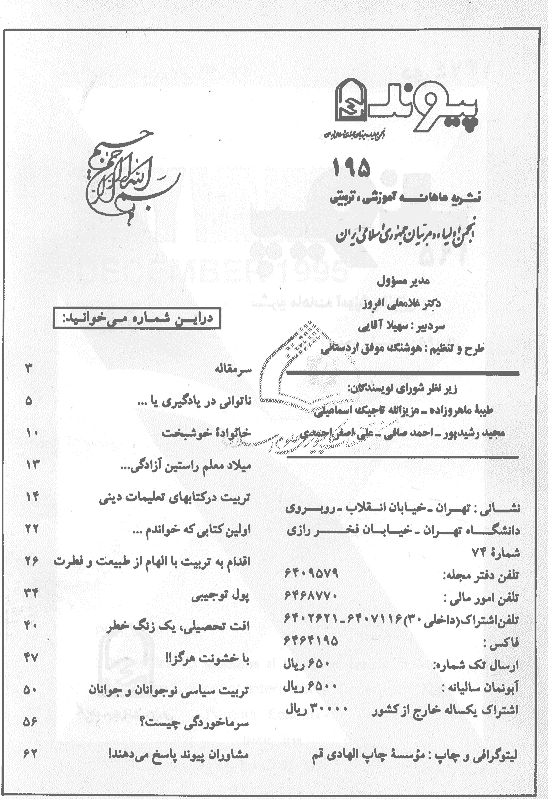 بسم الله الرحمن الرحیم
پیوند
۱۹۵
نشریه ماهانه آموزشی، تربیتی
انجمن اولیاء و مربیان جمهوری اسلامی ایران
مدیر مسؤول
دکتر غلامعلی افروز
سردبیر : سهیلا آقایی
طرح و تنظیم : هوشنگ موفق اردستانی
زیر نظر شورای نویسندگان:
طیبهٔ ماهروزاده ـ عزیزالله تاجیک اسماعیلی
مجید رشیدپور ـ احمد صافی ـ علی اصغر احمدی
نشانی : تهران ـ خیابان انقلاب ـ روبروی
دانشگاه تهران ـ خیابان فخر رازی
شمارهٔ ۷۴
تلفن دفتر مجله: ۶۴۰۹۵۷۹
تلفن امور مالی : ۶۴۶۸۷۷۰
تلفن اشتراک (داخلی ۳۰) ۶۴۰۷۱۱۶ ـ ۶۴۰۲۶۲۱
فاکس : ۶۴۶۴۱۹۵
ارسال تک شماره: ۶۵۰ ریال
آبونمان سالیانه : ۶۵۰۰ ریال
اشتراک یکساله خارج از کشور ۳۰۰۰۰ ریال
لیتوگرافی و چاپ : مؤسسهٔ چاپ الهادی قم
دراین شماره می‌خوانید:
سرمقاله ۳
ناتوانی در یادگیری یا ... ۵
خانوادهٔ خوشبخت ۱۰
میلاد معلم راستین آزادگی... ۱۳
تربیت درکتابهای تعلیمات دینی ۱۴
اولین کتابی که خواندم ... ۲۲
اقدام به تربیت با الهام از طبیعت و فطرت ۲۶
پول توجیبی ۳۴
افت تحصیلی، یک زنگ خطر ۴۰
با خشونت هرگز!! ۴۷
تربیت سیاسی نوجوانان و جوانان ۵۰
سرماخوردگی چیست؟ ۵۶
مشاوران پیوند پاسخ می‌دهند! ۶۲